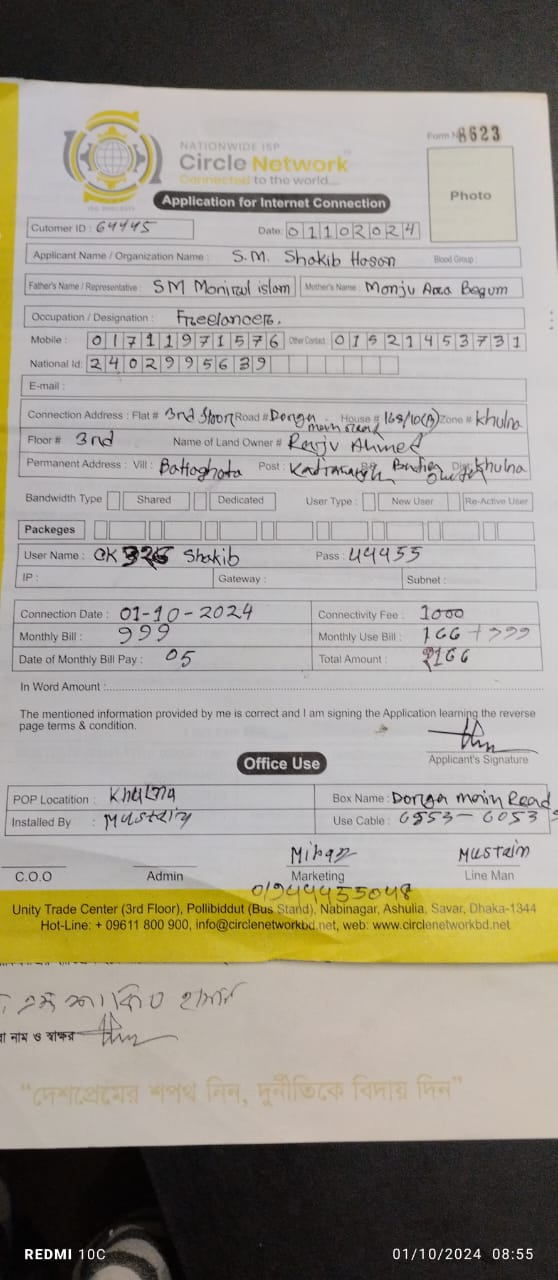 Form N 8623
NATIONWIDE ISP
Circle Network
Connected to the world....
Photo
Application for Internet Connection
Cutomer ID : 64445 Date: 01102024
Applicant Name / Organization Name : S.M. Shakib Hasan Blood Group :
Father's Name / Representative : SM Monirul islam Mother's Name : Monju Ara Begum
Occupation / Designation : Freelancer.
Mobile : 01711971576 Other Contact 01521453731
National Id: 2402995639
E-mail :
Connection Address : Flat # 3rd floor Road # main Road House # 168/10(A) Zone # Khulna
Floor # 3rd Name of Land Owner # Ahmed
Permanent Address : Vill : Battaghata Post : Khulna
Bandwidth Type Shared Dedicated User Type : New User Re-Active User
Packeges
User Name : CK Shakib Pass : 44455
IP : Gateway : Subnet :
Connection Date : 01-10-2024 Connectivity Fee : 1000
Monthly Bill : 999 Monthly Use Bill : 166 + 999
Date of Monthly Bill Pay : 05 Total Amount : 2166
In Word Amount :
The mentioned information provided by me is correct and I am signing the Application learning the reverse
page terms & condition.
Applicant's Signature
Office Use
POP Locatition : Khulna Box Name : main Road
Installed By : Mustain Use Cable : 6553 - 6053
Mustain
C.O.O Admin Marketing Line Man
Unity Trade Center (3rd Floor), Pollibiddut (Bus Stand), Nabinagar, Ashulia, Savar, Dhaka-1344
Hot-Line: + 09611 800 900, info@circlenetworkbd.net, web: www.circlenetworkbd.net
এম সাকিব হাসান
নাম ও স্বাক্ষর
“দেশপ্রেমের শপথ নিন, দুর্নীতিকে বিদায় দিন”
REDMI 10C 01/10/2024 08:55